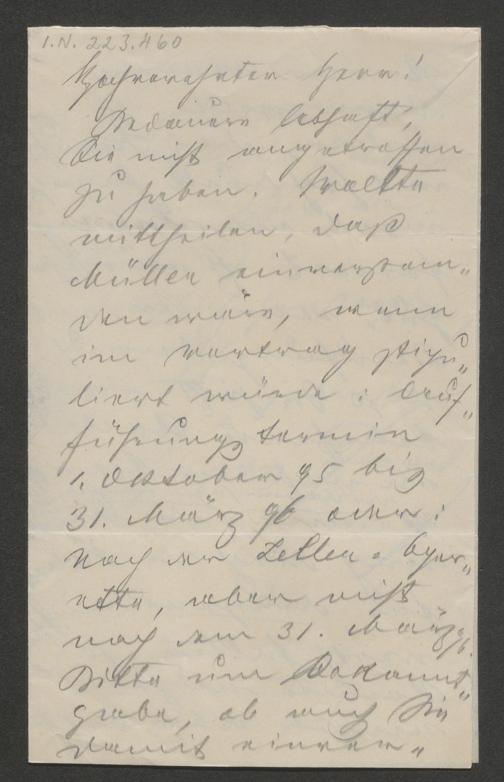 I.N. 223.460
Hochverehrter Herr!
Bedauere lebhaft,
Sie nicht angetroffen
zu haben. Wollte
mittheilen, daß
Müller einverstan„
den wäre, wenn
im Vertrag stipu„
liert würde: Auf„
führungstermin
1. Oktober 95 bis
31. März 96 oder:
nach der Zeller-Oper„
ette, aber nicht
nach dem 31. März 96.
Bitte um Bekannt„
gabe, ob auch Sie
damit einver„